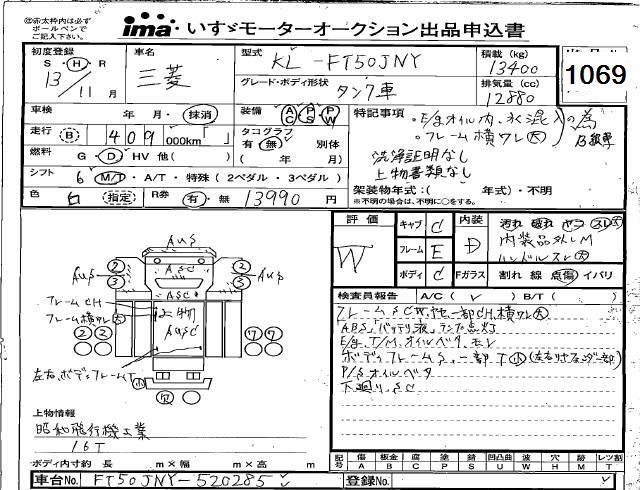 ㊟赤太枠内は必ず
ボールペンで
ご記入下さい。
ima いすゞモーターオークション出品申込書
初度登録 S・H・R 13年 11月
車名 三菱
型式 KL-FT50JNY
積載(kg) 13400
グレード・ボディ形状 タンク車
排気量(cc) 12880
1069
車検 年・月・(抹消)
装備 AC PS PW
走行 B 409 000km「 」
タコグラフ 有(無) 別体 ( 年 月)
特記事項
・E/gオイル内、水混入の為
・フレーム横ワレ大 B級車
洗浄証明なし
上物書類なし
燃料 G・D・HV 他( )
シフト 6 M/T・A/T・特殊(2ペダル・3ペダル)
架装物年式:( 年式)・不明
※不明の場合は、不明に○をする。
色 白 (指定) R券 有・無 13990円
評価 W
キャブ C
フレーム E
ボディ C
内装 D
汚れ 破れ ヤコ スレ大
内装品外しM
ハンドルスレ大
Fガラス 割れ 線 点傷 イバリ
AUS
ASC
AUS
AUS
ASC
フレームCH
フレーム横ワレ大
上物
AUSC
左右、ボディフレームT 小
検査員報告 A/C( ✓ ) B/T( )
フレームSC W.他一部CH.横ワレ大
ABS、バッテリ液、ランプ点灯
E/g、T/M、オイルベタ、モレ
ボディ、フレームS、一部T小
P/Sオイルベタ
下廻り、SC
上物情報
昭和飛行機工業
16T
ボディ内寸約 長 m×幅 m×高 m
記号 傷 板金 腐 塗 錆 凹凸曲 波 穴 外 レツ割
A B C P S U W H M T
車台No. FT50JNY-520285
登録No.